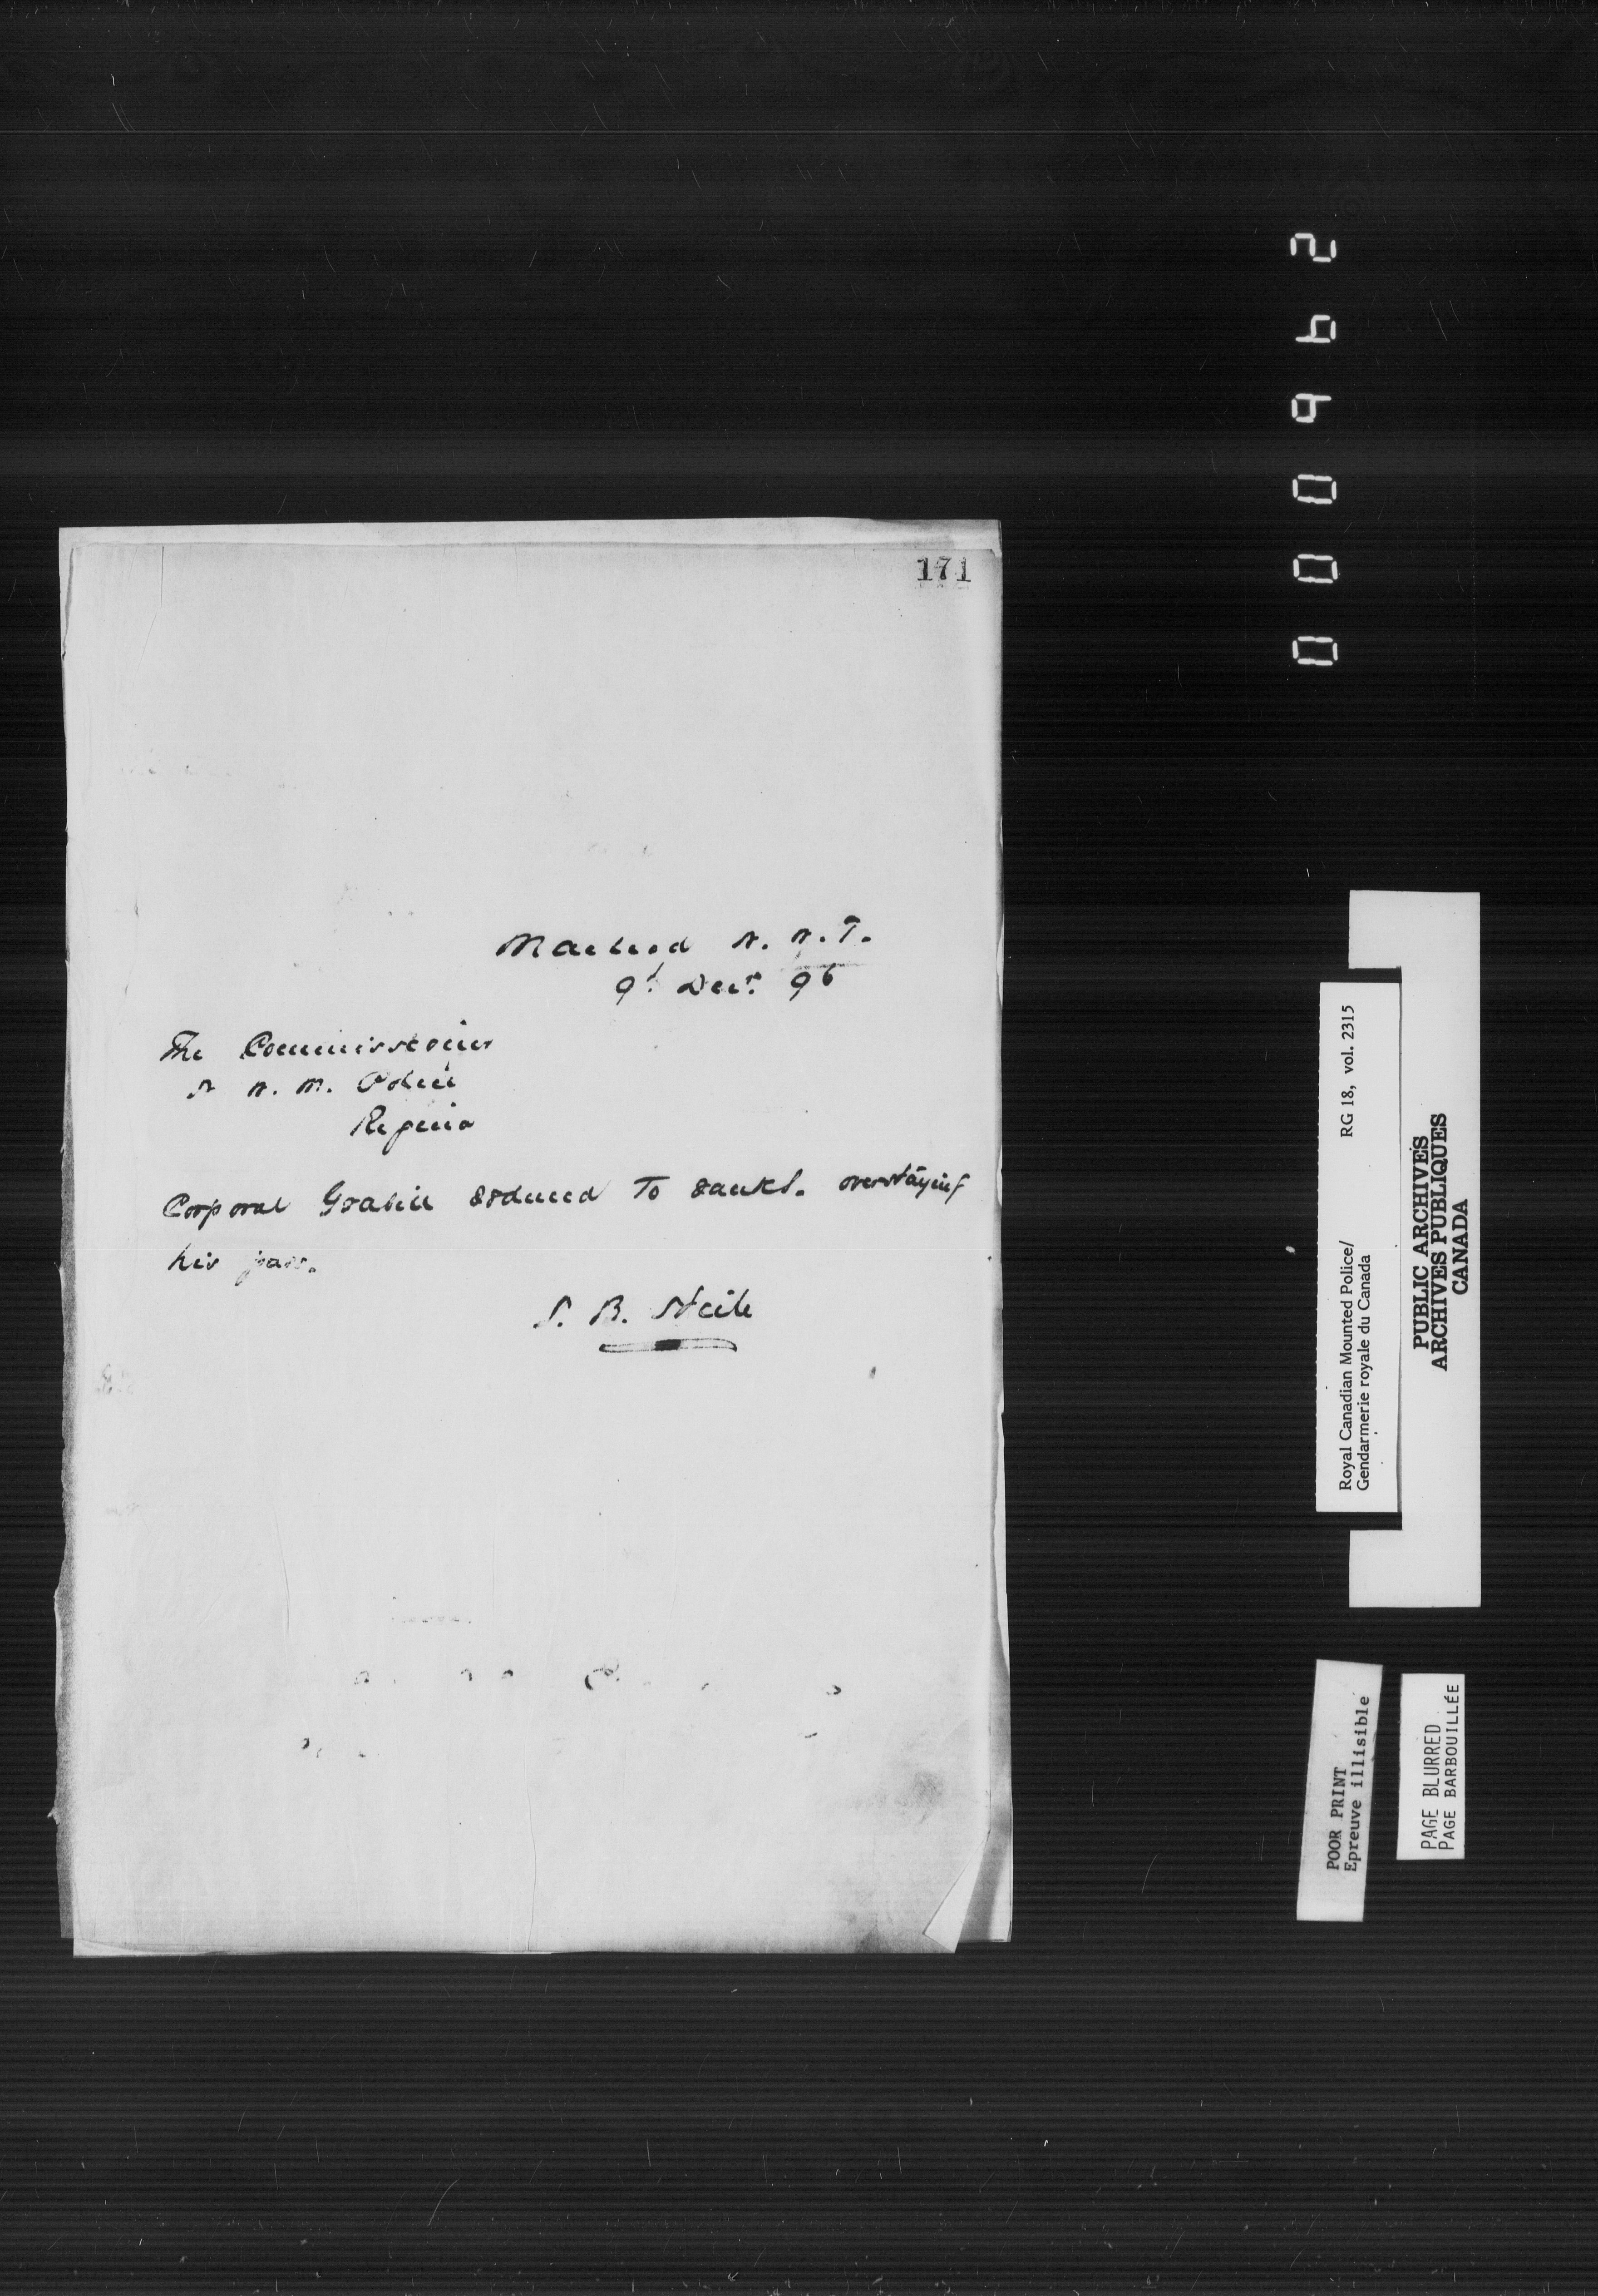 171
Macleod N. W. T.
9th Decr. 96
The Commissioner
N W. M. Police
Regina
Corporal reduced to ranks. overstaying
his pass.
S. B. Steele
000962
Royal Canadian Mounted Police/ RG 18, vol. 2315
Gendarmerie royale du Canada
PUBLIC ARCHIVES
ARCHIVES PUBLIQUES
CANADA
POOR PRINT
Epreuve illisible
PAGE BLURRED
PAGE BARBOUILLÉE